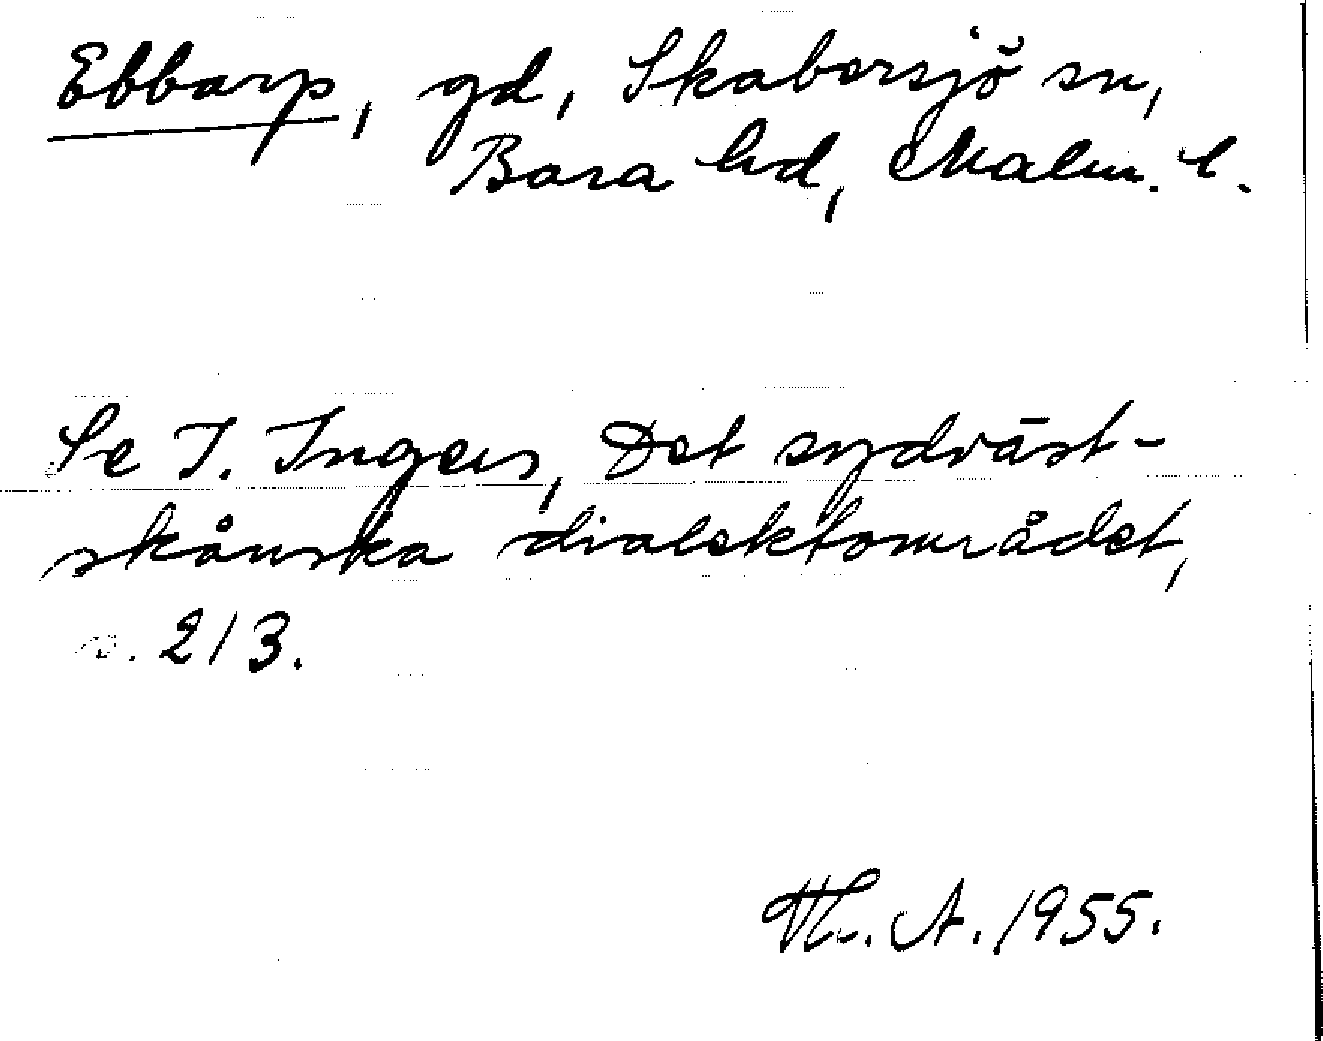 Ebbarp, gd, Skabersjö sn,
Bara hd, Malm. l.
Se I. Ingers, Det sydväst-
skånska dialektområdet,
s. 213.
Th. A. 1955.